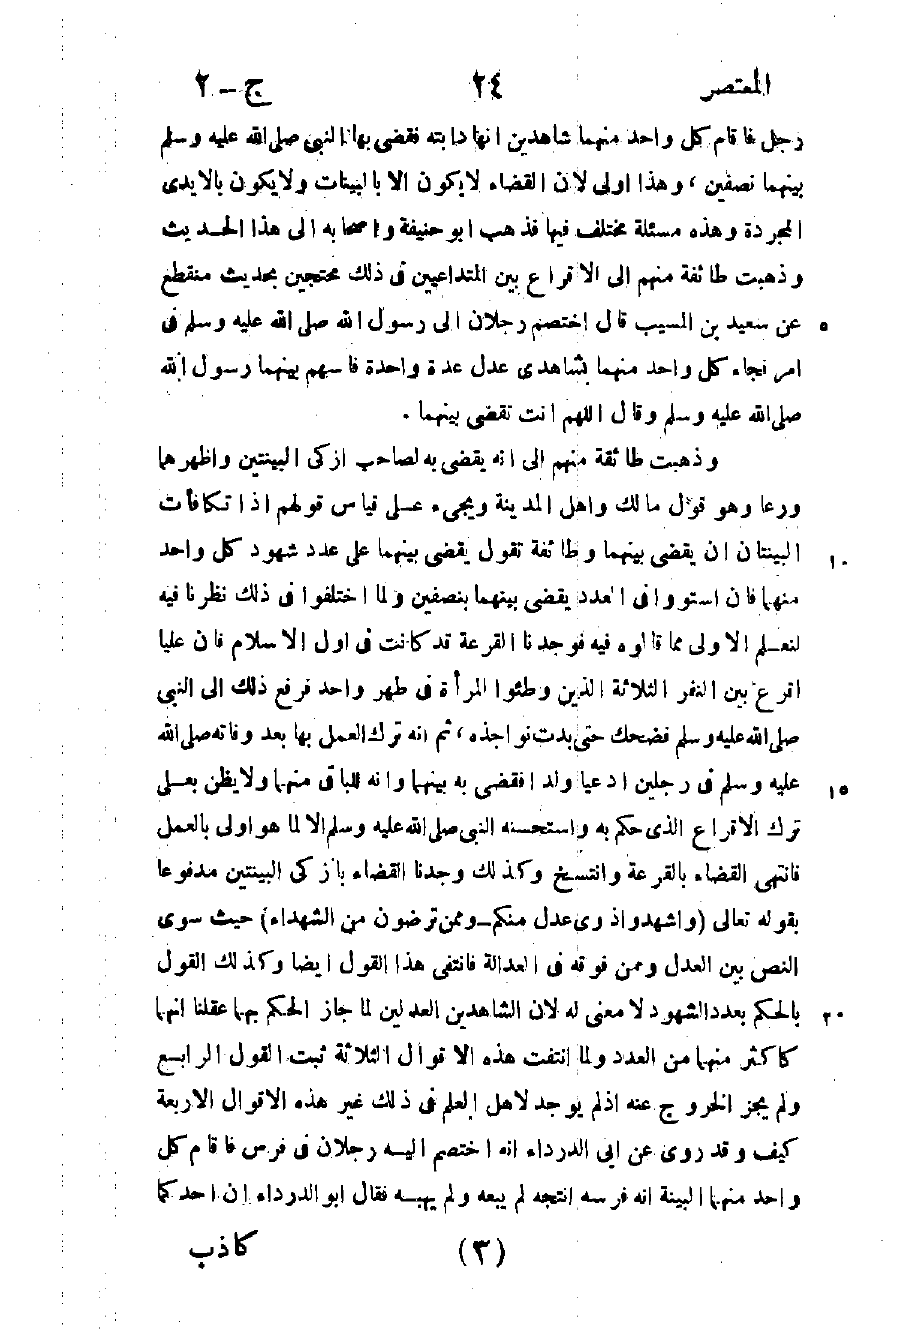 المعتصر ٢٤ ج – ٢
رجل فاقام كل واحد منهما شاهدين انها دابته فقضى بها النبي صلى الله عليه وسلم
بينهما نصفين ، وهذا اولى لان القضاء لايكون الا بالبينات ولايكون بالايدى
المجردة وهذه مسئلة مختلف فيها فذهب ابو حنيفة واصحابه الى هذا الحديث
وذهبت طائفة منهم الى الاقراع بين المتداعيين فى ذلك محتجين بحديث منقطع
عن سعيد بن المسيب قال اختصم رجلان الى رسول الله صلى الله عليه وسلم فى ٥
امر فجاء كل واحد منهما بشاهدى عدل عدة واحدة فاسهم بينهما رسول الله
صلى الله عليه وسلم وقال اللهم انت تقضى بينهما .
وذهبت طائفة منهم الى انه يقضى به لصاحب ازكى البينتين واظهرهما
ورعا وهو قول مالك واهل المدينة ويجىء عـلى قياس قولهم اذا تكافأت
البينتان ان يقضى بينهما وطائفة تقول يقضى بينهما على عدد شهود كل واحد ١٠
منهما فان استووا فى العدد يقضى بينهما بنصفين ولما اختلفوا فى ذلك نظرنا فيه
لنعـلم الاولى مما قالوه فيه فوجدنا القرعة قد كانت فى اول الاسلام فان عليا
اقرع بين النفر الثلاثة الذين وطئوا المرأة فى طهر واحد فرفع ذلك الى النبي
صلى الله عليه وسلم فضحك حتى بدت نواجذه ، ثم انه ترك العمل بها بعد وفاته صلى الله
عليه وسلم فى رجلين ادعيا ولدا فقضى به بينهما وانه للباقى منهما ولايظن بعـلى ١٥
ترك الاقراع الذى حكم به واستحسنه النبي صلى الله عليه وسلم الا لما هو اولى بالعمل
فانتهى القضاء بالقرعة وانتسخ وكذلك وجدنا القضاء بازكى البينتين مدفوعا
بقوله تعالى (واشهدوا ذوى عدل منكم ــ وممن ترضون من الشهداء) حيث سوى
النص بين العدل وممن فوقه فى العدالة فانتفى هذا القول ايضا وكذلك القول
بالحكم بعدد الشهود لا معنى له لان الشاهدين العدلين لما جاز الحكم بهما عقلنا انهما ٢٠
كاكثر منهما من العدد ولما انتفت هذه الاقوال الثلاثة ثبت القول الرابـع
ولم يجز الخروج عنه اذلم يوجد لاهل العلم فى ذلك غير هذه الاقوال الاربعة
كيف وقد روى عن ابى الدرداء انه اختصم اليـه رجلان فى فرس فاقام كل
واحد منهما البينة انه فرسه انتجه لم يبعه ولم يهبـه فقال ابو الدرداء ان احدكما
(٣) كاذب